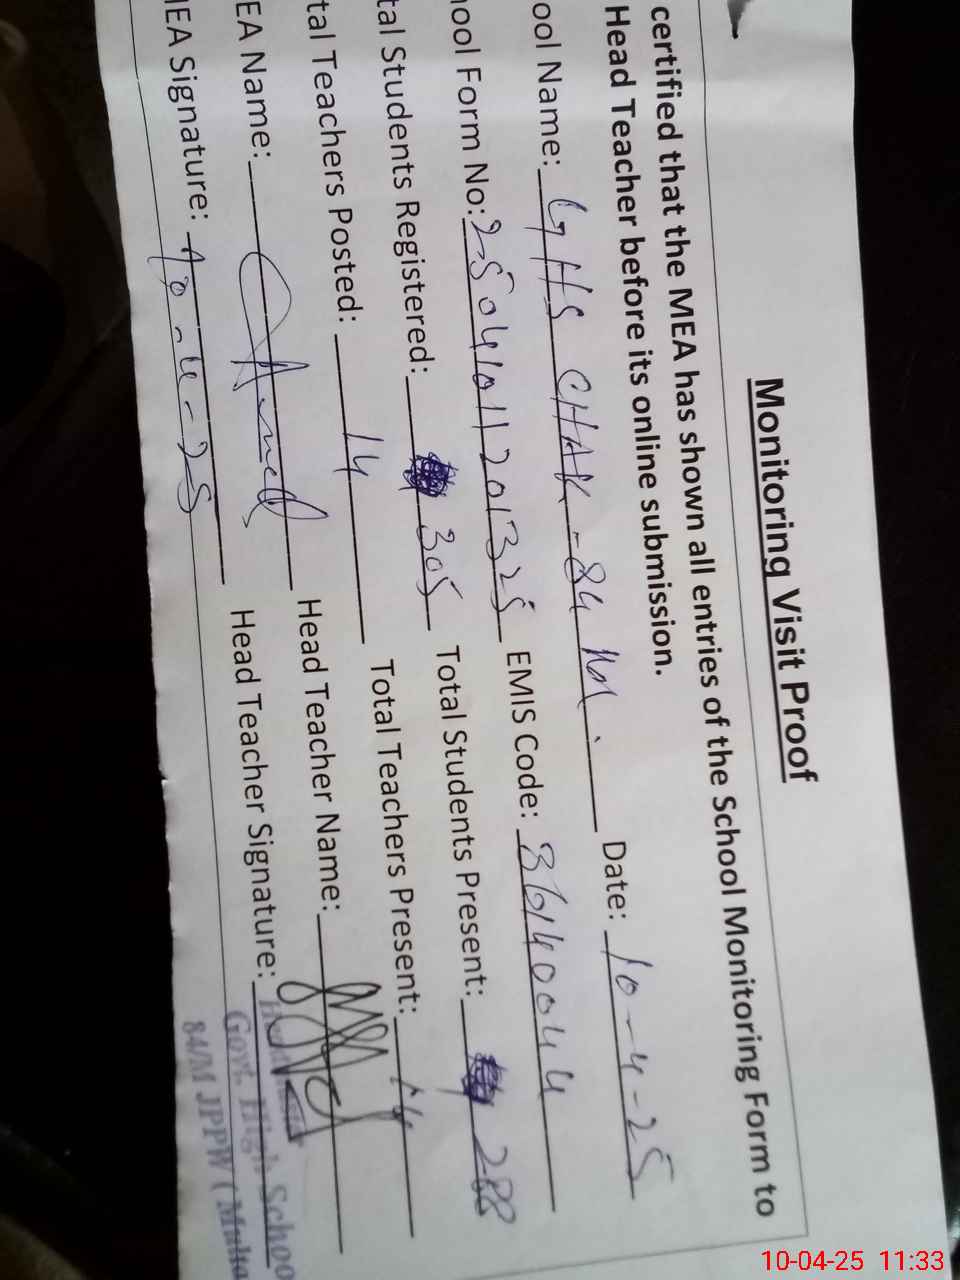 Monitoring Visit Proof
certified that the MEA has shown all entries of the School Monitoring Form to
Head Teacher before its online submission.
ool Name: GHS CHAK-84 Date: 10-4-25
ool Form No: 25041011201325 EMIS Code: 36140044
tal Students Registered: 305 Total Students Present: 288
tal Teachers Posted: 14 Total Teachers Present: 14
EA Name: Head Teacher Name:
MEA Signature: 10-4-25 Head Teacher Signature:
Govt. High Schoo
84/M JPPW (Multa
10-04-25 11:33